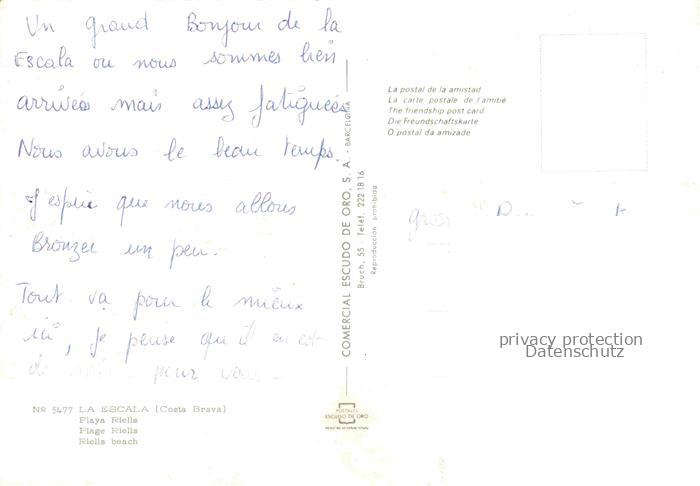 Un grand Bonjour de la
Escala ou nous sommes bien
arrivées mais assez fatiguées
Nous avons le beau temps.
J'espère que nous allons
Bronzer un peu.
Tout va pour le mieux
ici, je pense qu'il en est
de même pour vous
Nº 5477 LA ESCALA (Costa Brava)
Playa Riells
Plage Riells
Riells beach
COMERCIAL ESCUDO DE ORO, S. A. - BARCELONA
Bruch, 55 - Teléf. 222 18 16
Reproducción prohibida
POSTALES
ESCUDO DE ORO
La postal de la amistad
La carte postale de l'amitié
The friendship post card
Die Freundschaftskarte
O postal da amizade
gross
privacy protection
Datenschutz